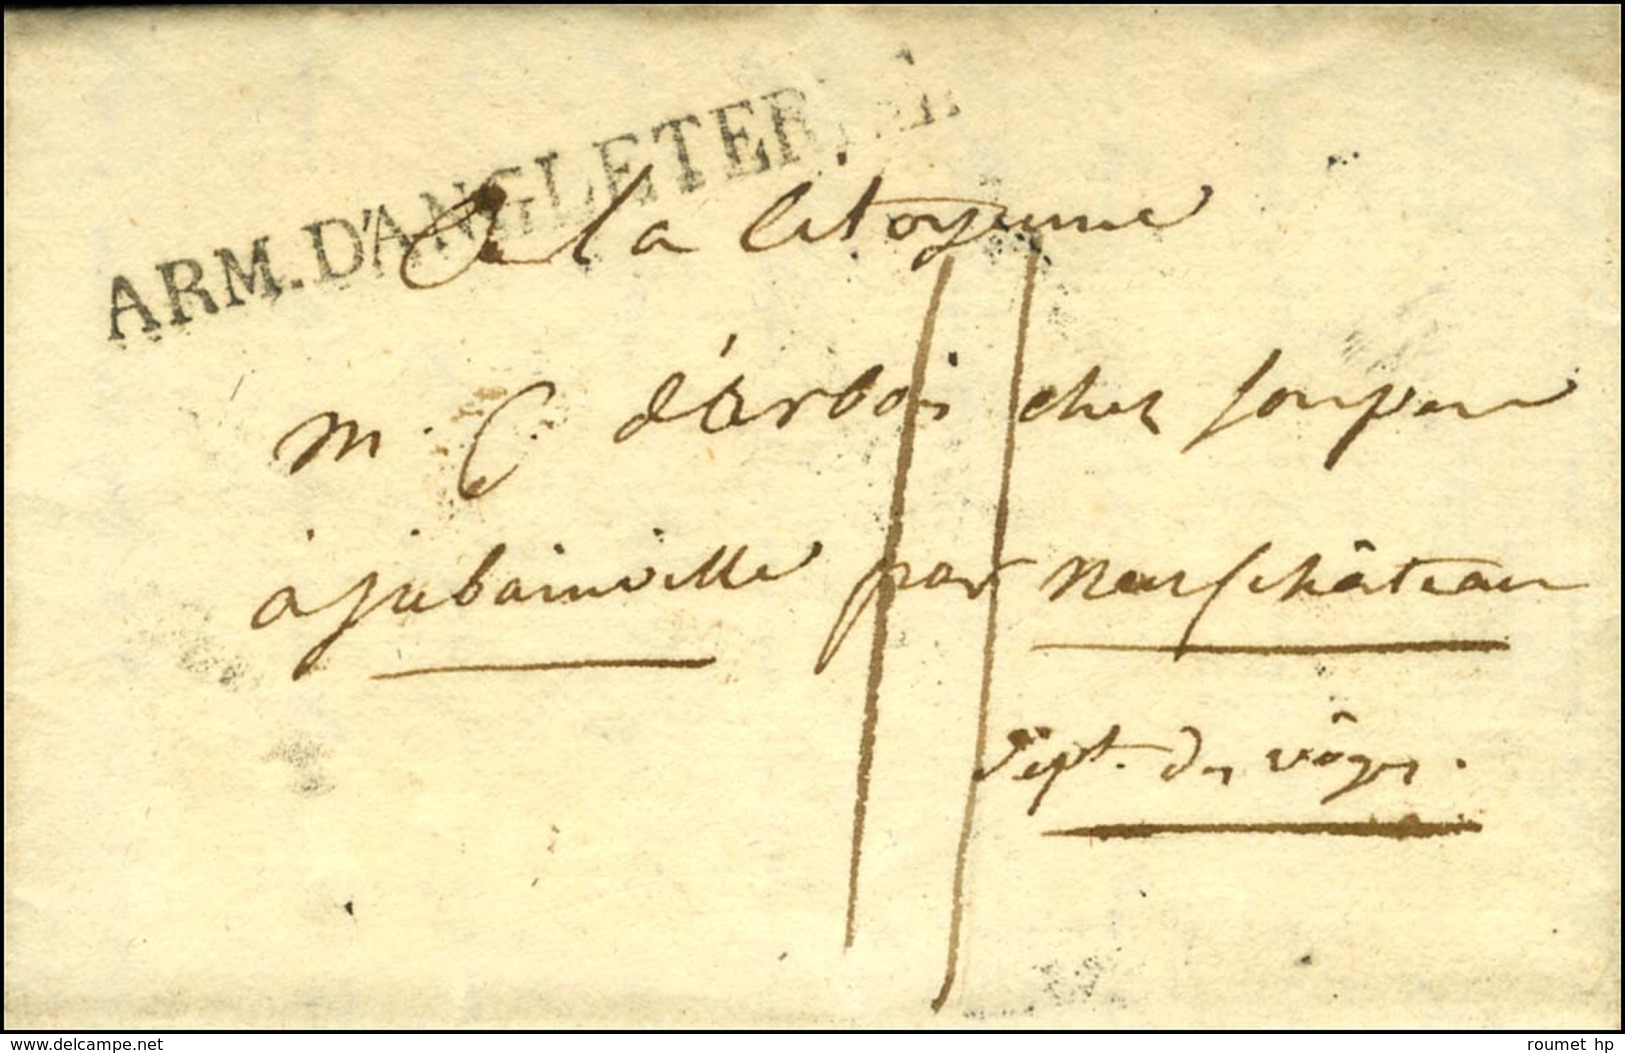 ARM. D'ANGLETERRE
A la Citoyenne
m. C. d'arbois chez son pere
à jubainville par neufchâteau
dépt. des vôges.
delcampe.net
roumet hp